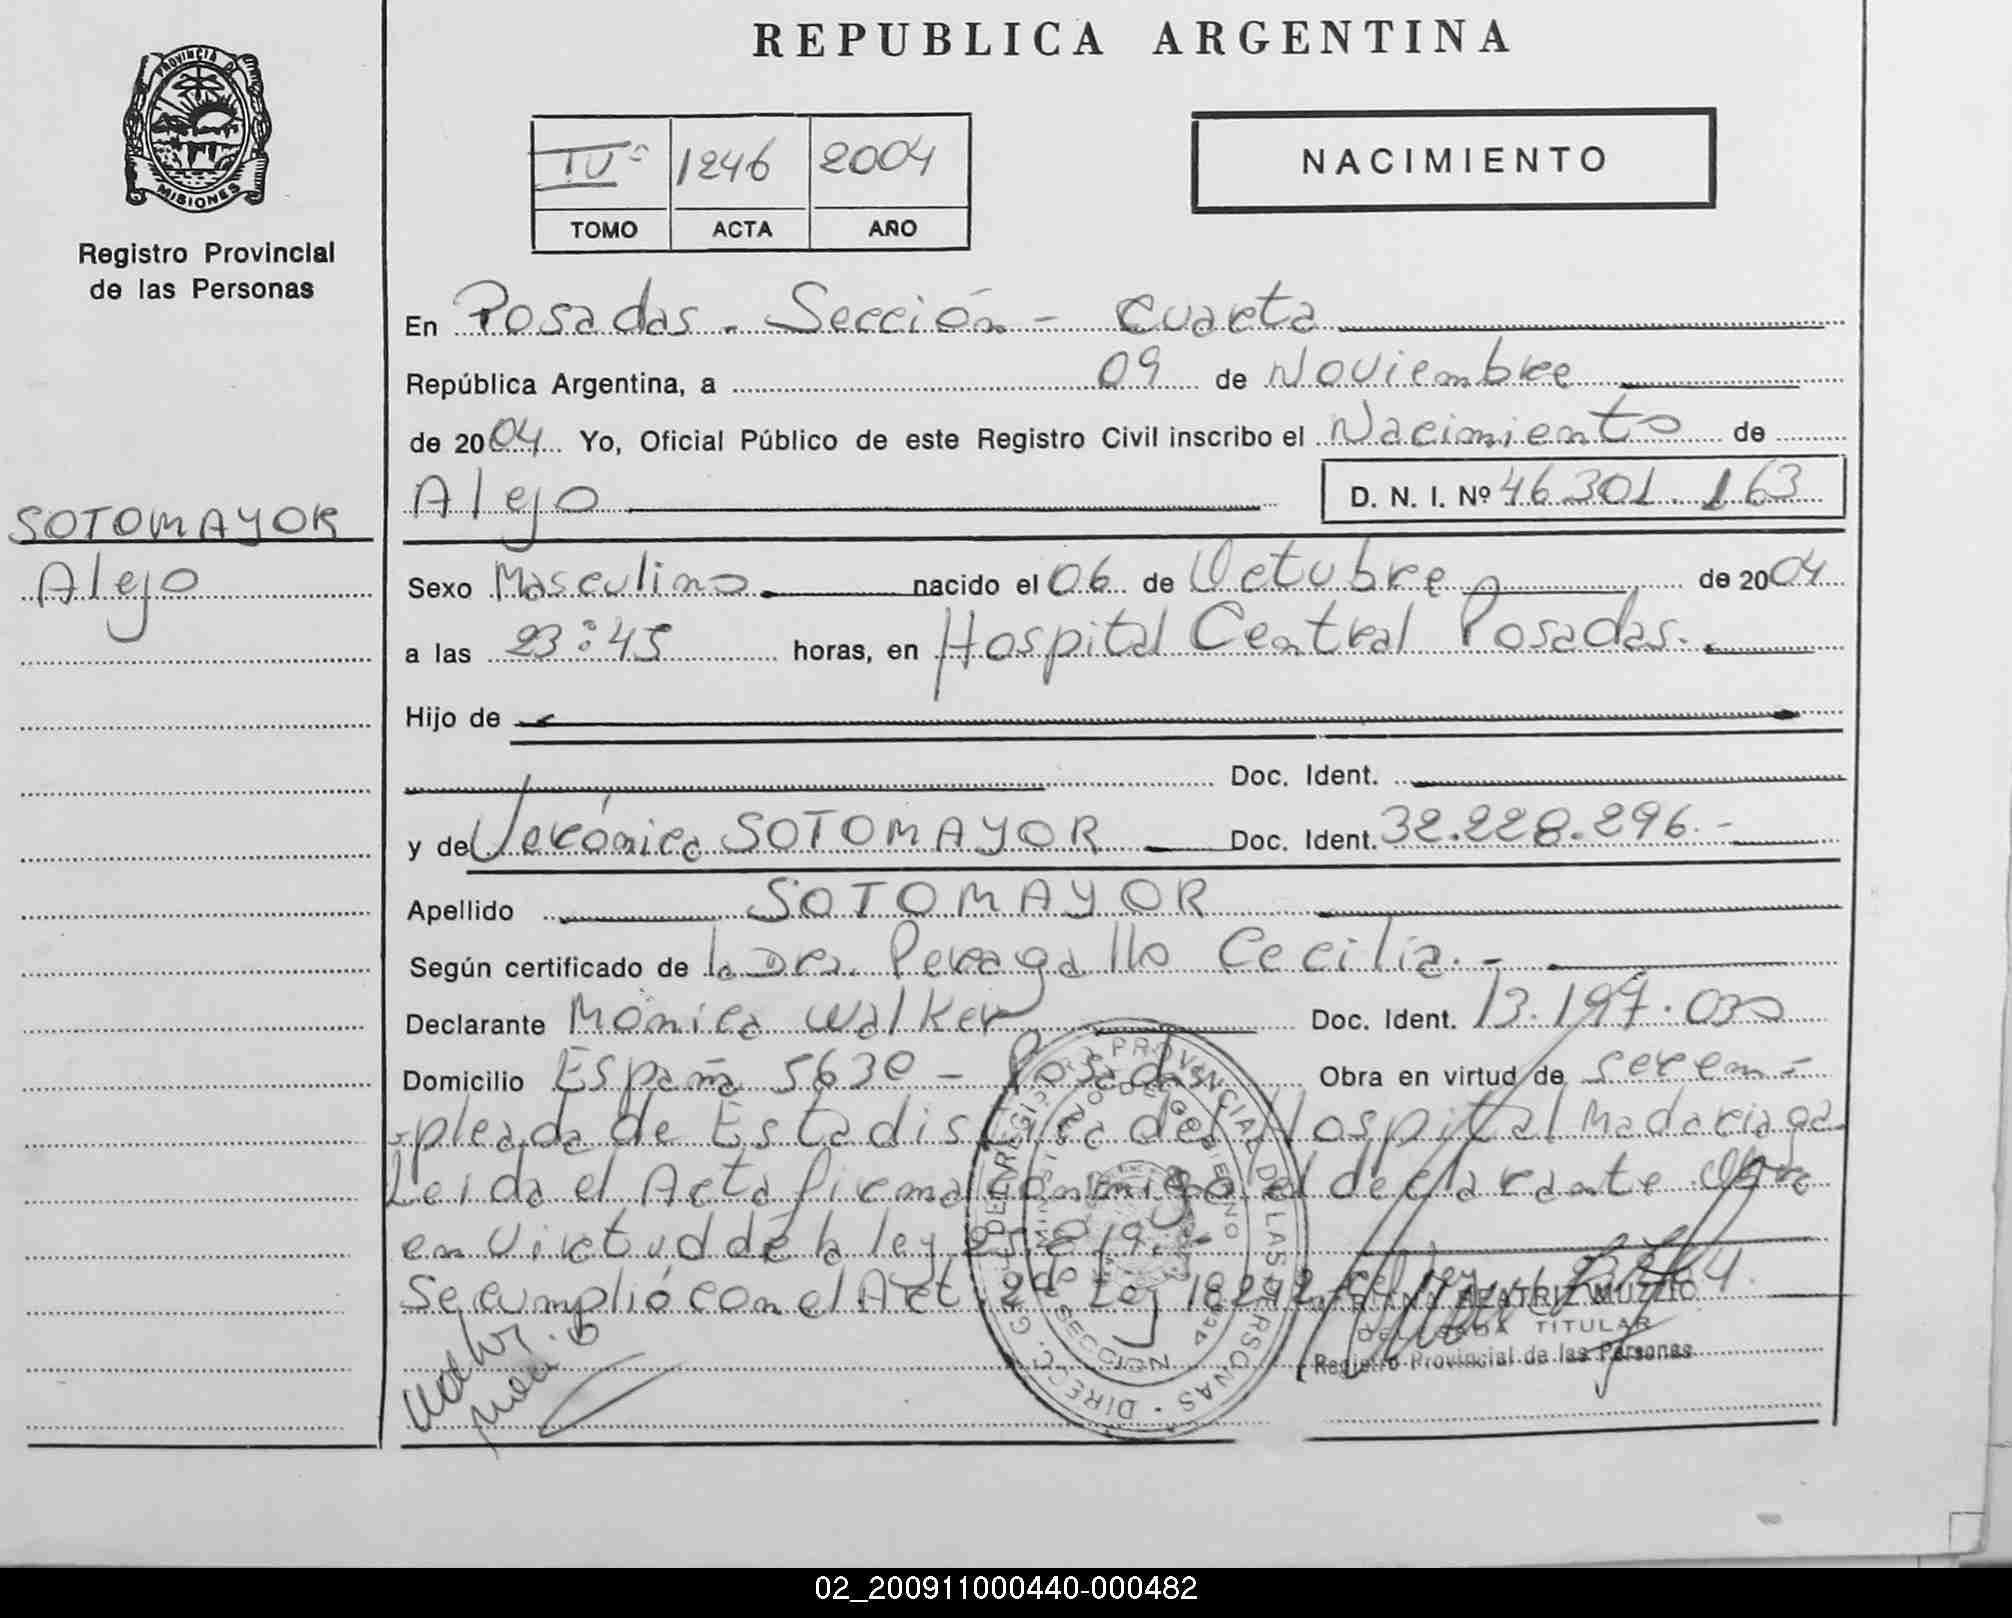 REPUBLICA ARGENTINA
PROVINCIA DE MISIONES
Registro Provincial
de las Personas
IVº 1246 2004
TOMO ACTA AÑO
NACIMIENTO
En Posadas - Sección - Cuarta
República Argentina, a 09 de Noviembre
de 2004 Yo, Oficial Público de este Registro Civil inscribo el Nacimiento de
Alejo D. N. I. Nº 46.301.163
SOTOMAYOR
Alejo
Sexo Masculino nacido el 06 de Octubre de 2004
a las 23:45 horas, en Hospital Central Posadas.
Hijo de
Doc. Ident.
y de Verónica SOTOMAYOR Doc. Ident. 32.228.296.-
Apellido SOTOMAYOR
Según certificado de la Dra. Peragallo Cecilia.-
Declarante Mónica Walker Doc. Ident. 13.197.030
Domicilio España 5630 - Posadas Obra en virtud de ser em-
pleada de Estadistica del Hospital Madariaga
Leida el Acta firma conmigo el declarante
en Virtud de la ley
Se cumplió con el Art. 2 de Ley 18242
BEATRIZ MUZZIO
DELEGADA TITULAR
Registro Provincial de las Personas
02_200911000440-000482